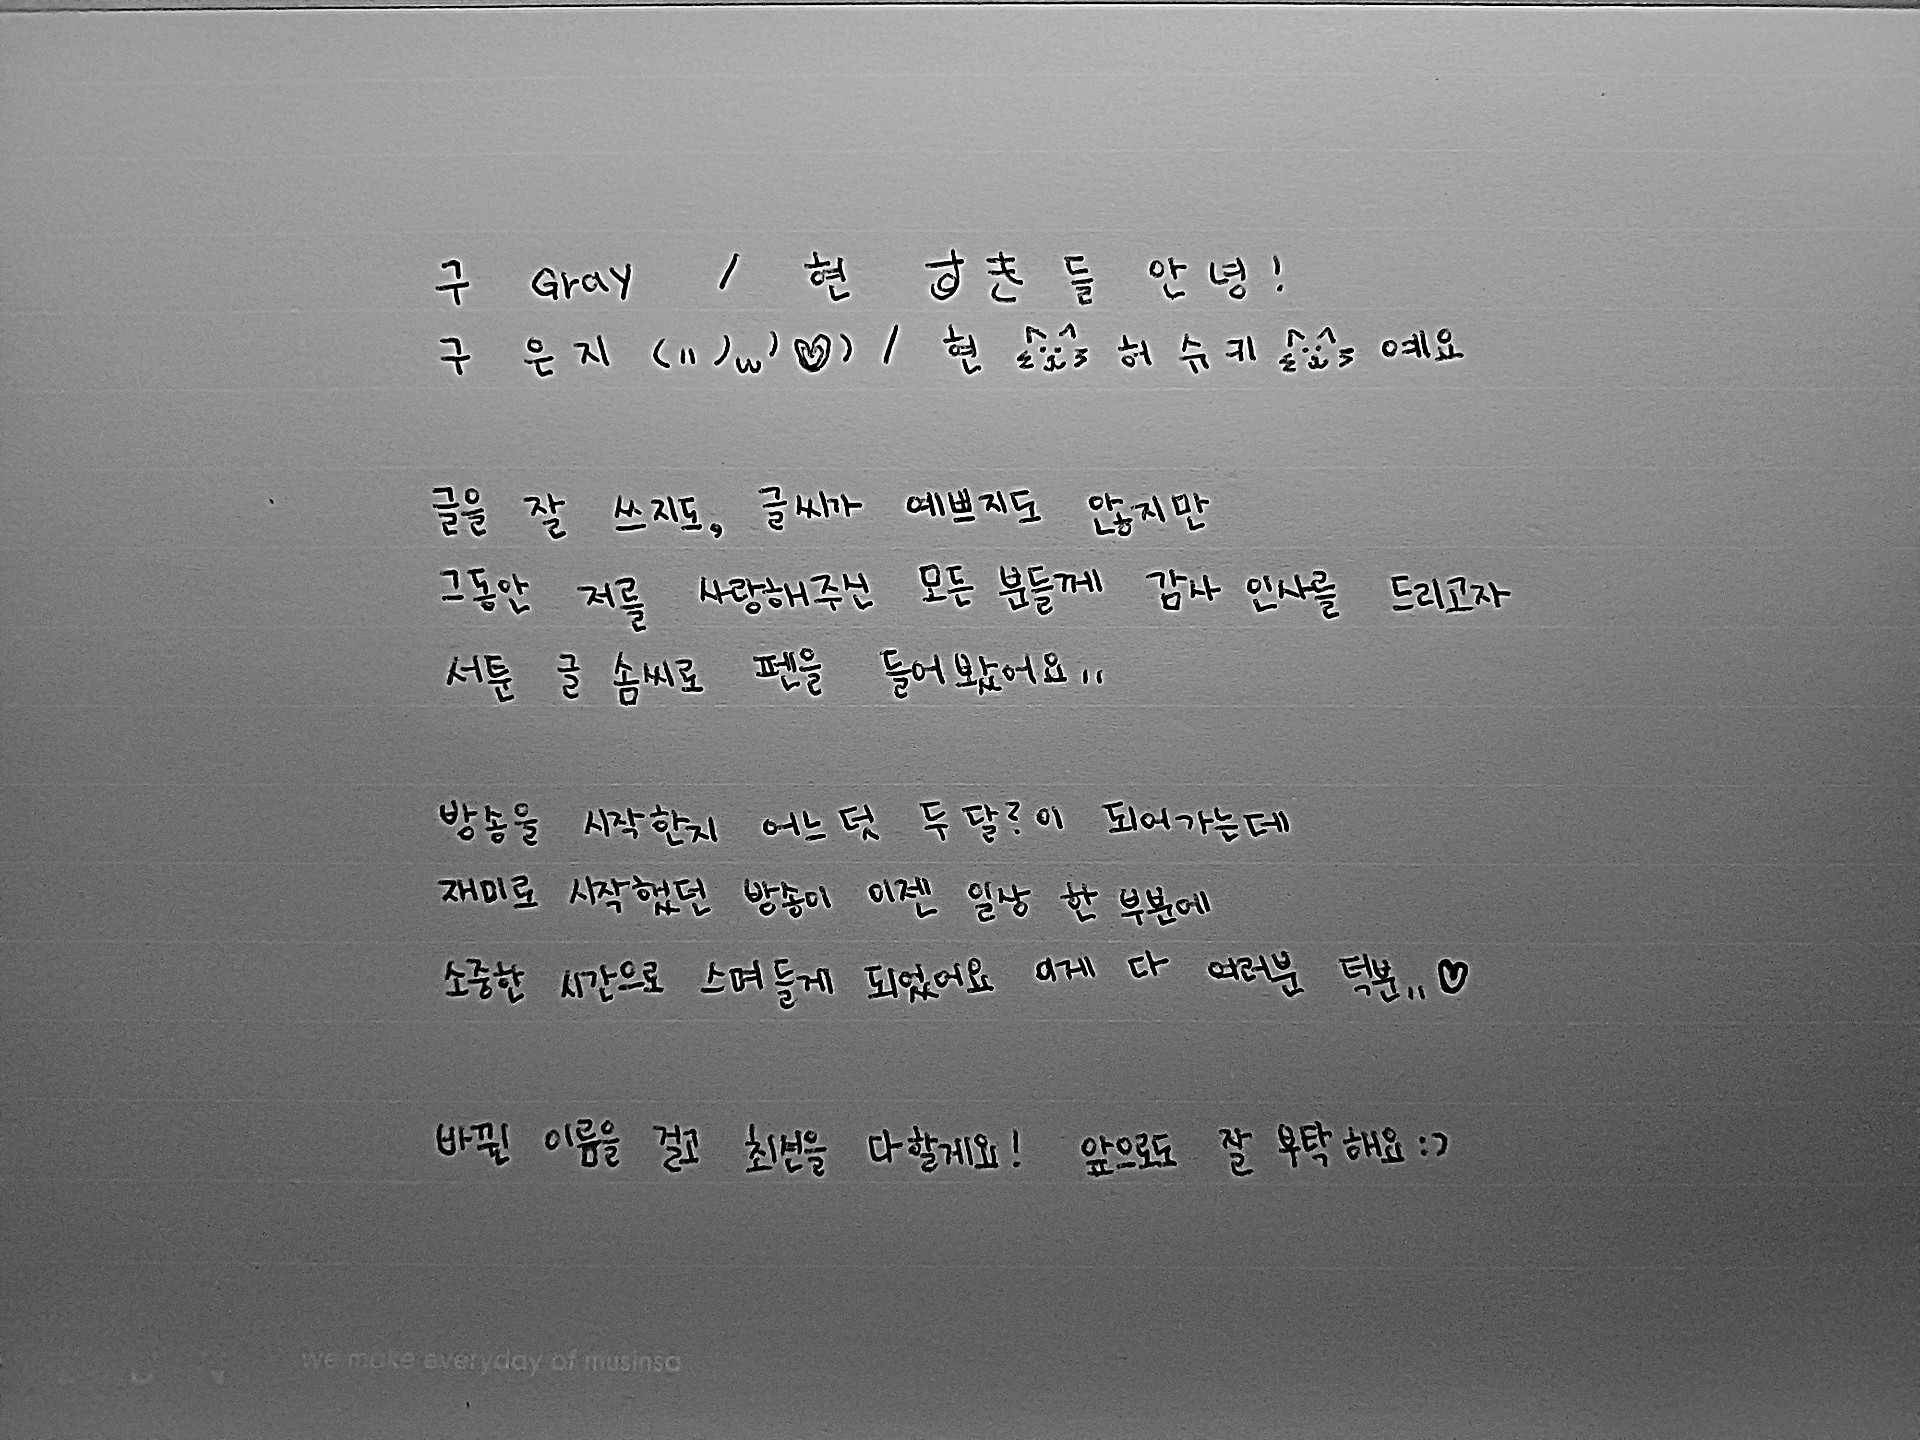 구 Gray / 현 들 안녕!
구 은지 („ )ω')♡) / 현 허슈키 예요
글을 잘 쓰지도, 글씨가 예쁘지도 않지만
그동안 저를 사랑해주신 모든 분들께 감사 인사를 드리고자
서툰 글 솜씨로 펜을 들어봤어요,,
방송을 시작한지 어느덧 두 달?이 되어가는데
재미로 시작했던 방송이 이젠 일상 한 부분에
소중한 시간으로 스며들게 되었어요 이게 다 여러분 턱분,,♡
바뀐 이름을 걸고 최선을 다할게요! 앞으로도 잘 부탁해요:)
we make everyday of musinsa